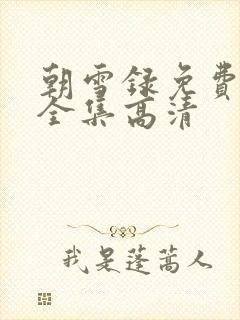 朝雪录免费
全集高清
我是蓬蒿人